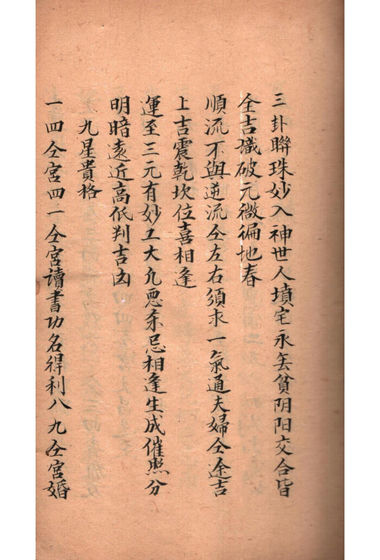 三卦聯珠妙入神世人墳宅永无貧阴阳交合皆
全吉識破元微徧地春
順流不與逆流仝左右須求一氣通夫婦仝途吉
上吉震乾坎位喜相逢
運至三元有妙工大凢悪杀忌相逢生成催煞分
明暗遠近高低判吉凶
九星貴格
一四仝宮四一仝宮讀書功名得利八九仝宮婚